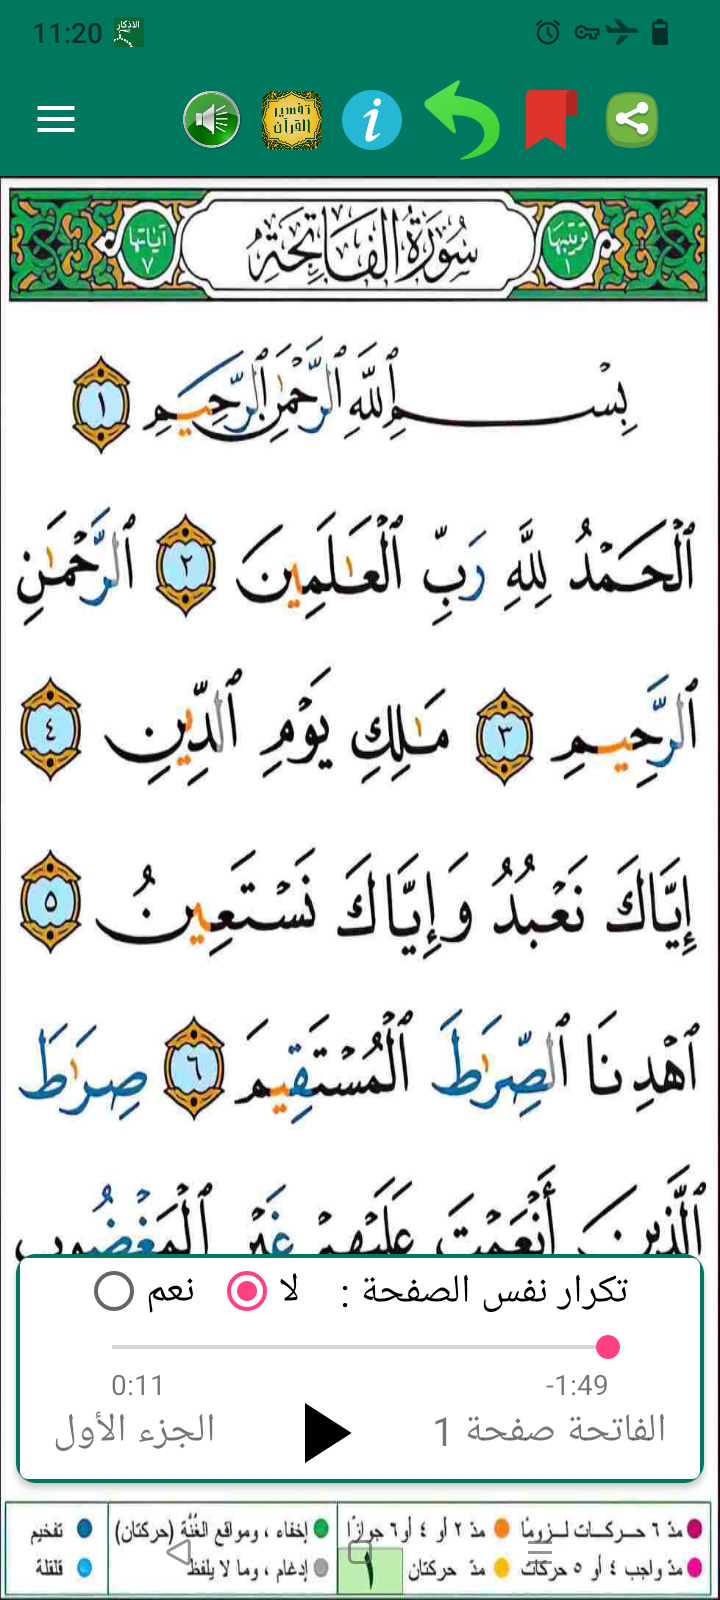 11:20 الاذكار
تفسير القرآن
ترتيبها ١ سُورَةُ الفَاتِحَةِ آياتها ٧
بِسْمِ ٱللَّهِ ٱلرَّحْمَٰنِ ٱلرَّحِيمِ ١
ٱلْحَمْدُ لِلَّهِ رَبِّ ٱلْعَٰلَمِينَ ٢ ٱلرَّحْمَٰنِ
ٱلرَّحِيمِ ٣ مَٰلِكِ يَوْمِ ٱلدِّينِ ٤
إِيَّاكَ نَعْبُدُ وَإِيَّاكَ نَسْتَعِينُ ٥
ٱهْدِنَا ٱلصِّرَٰطَ ٱلْمُسْتَقِيمَ ٦ صِرَٰطَ
ٱلَّذِينَ أَنْعَمْتَ عَلَيْهِمْ غَيْرِ ٱلْمَغْضُوبِ
تكرار نفس الصفحة : لا نعم
0:11 -1:49
الفاتحة صفحة 1 الجزء الأول
مدّ ٦ حركات لزومًا مدّ ٢ أو ٤ أو ٦ جوازًا إخفاء ، ومواقع الغُنَّة (حركتان) تفخيم
مدّ واجب ٤ أو ٥ حركات مدّ حركتان ١ إدغام ، وما لا يلفظ قلقلة